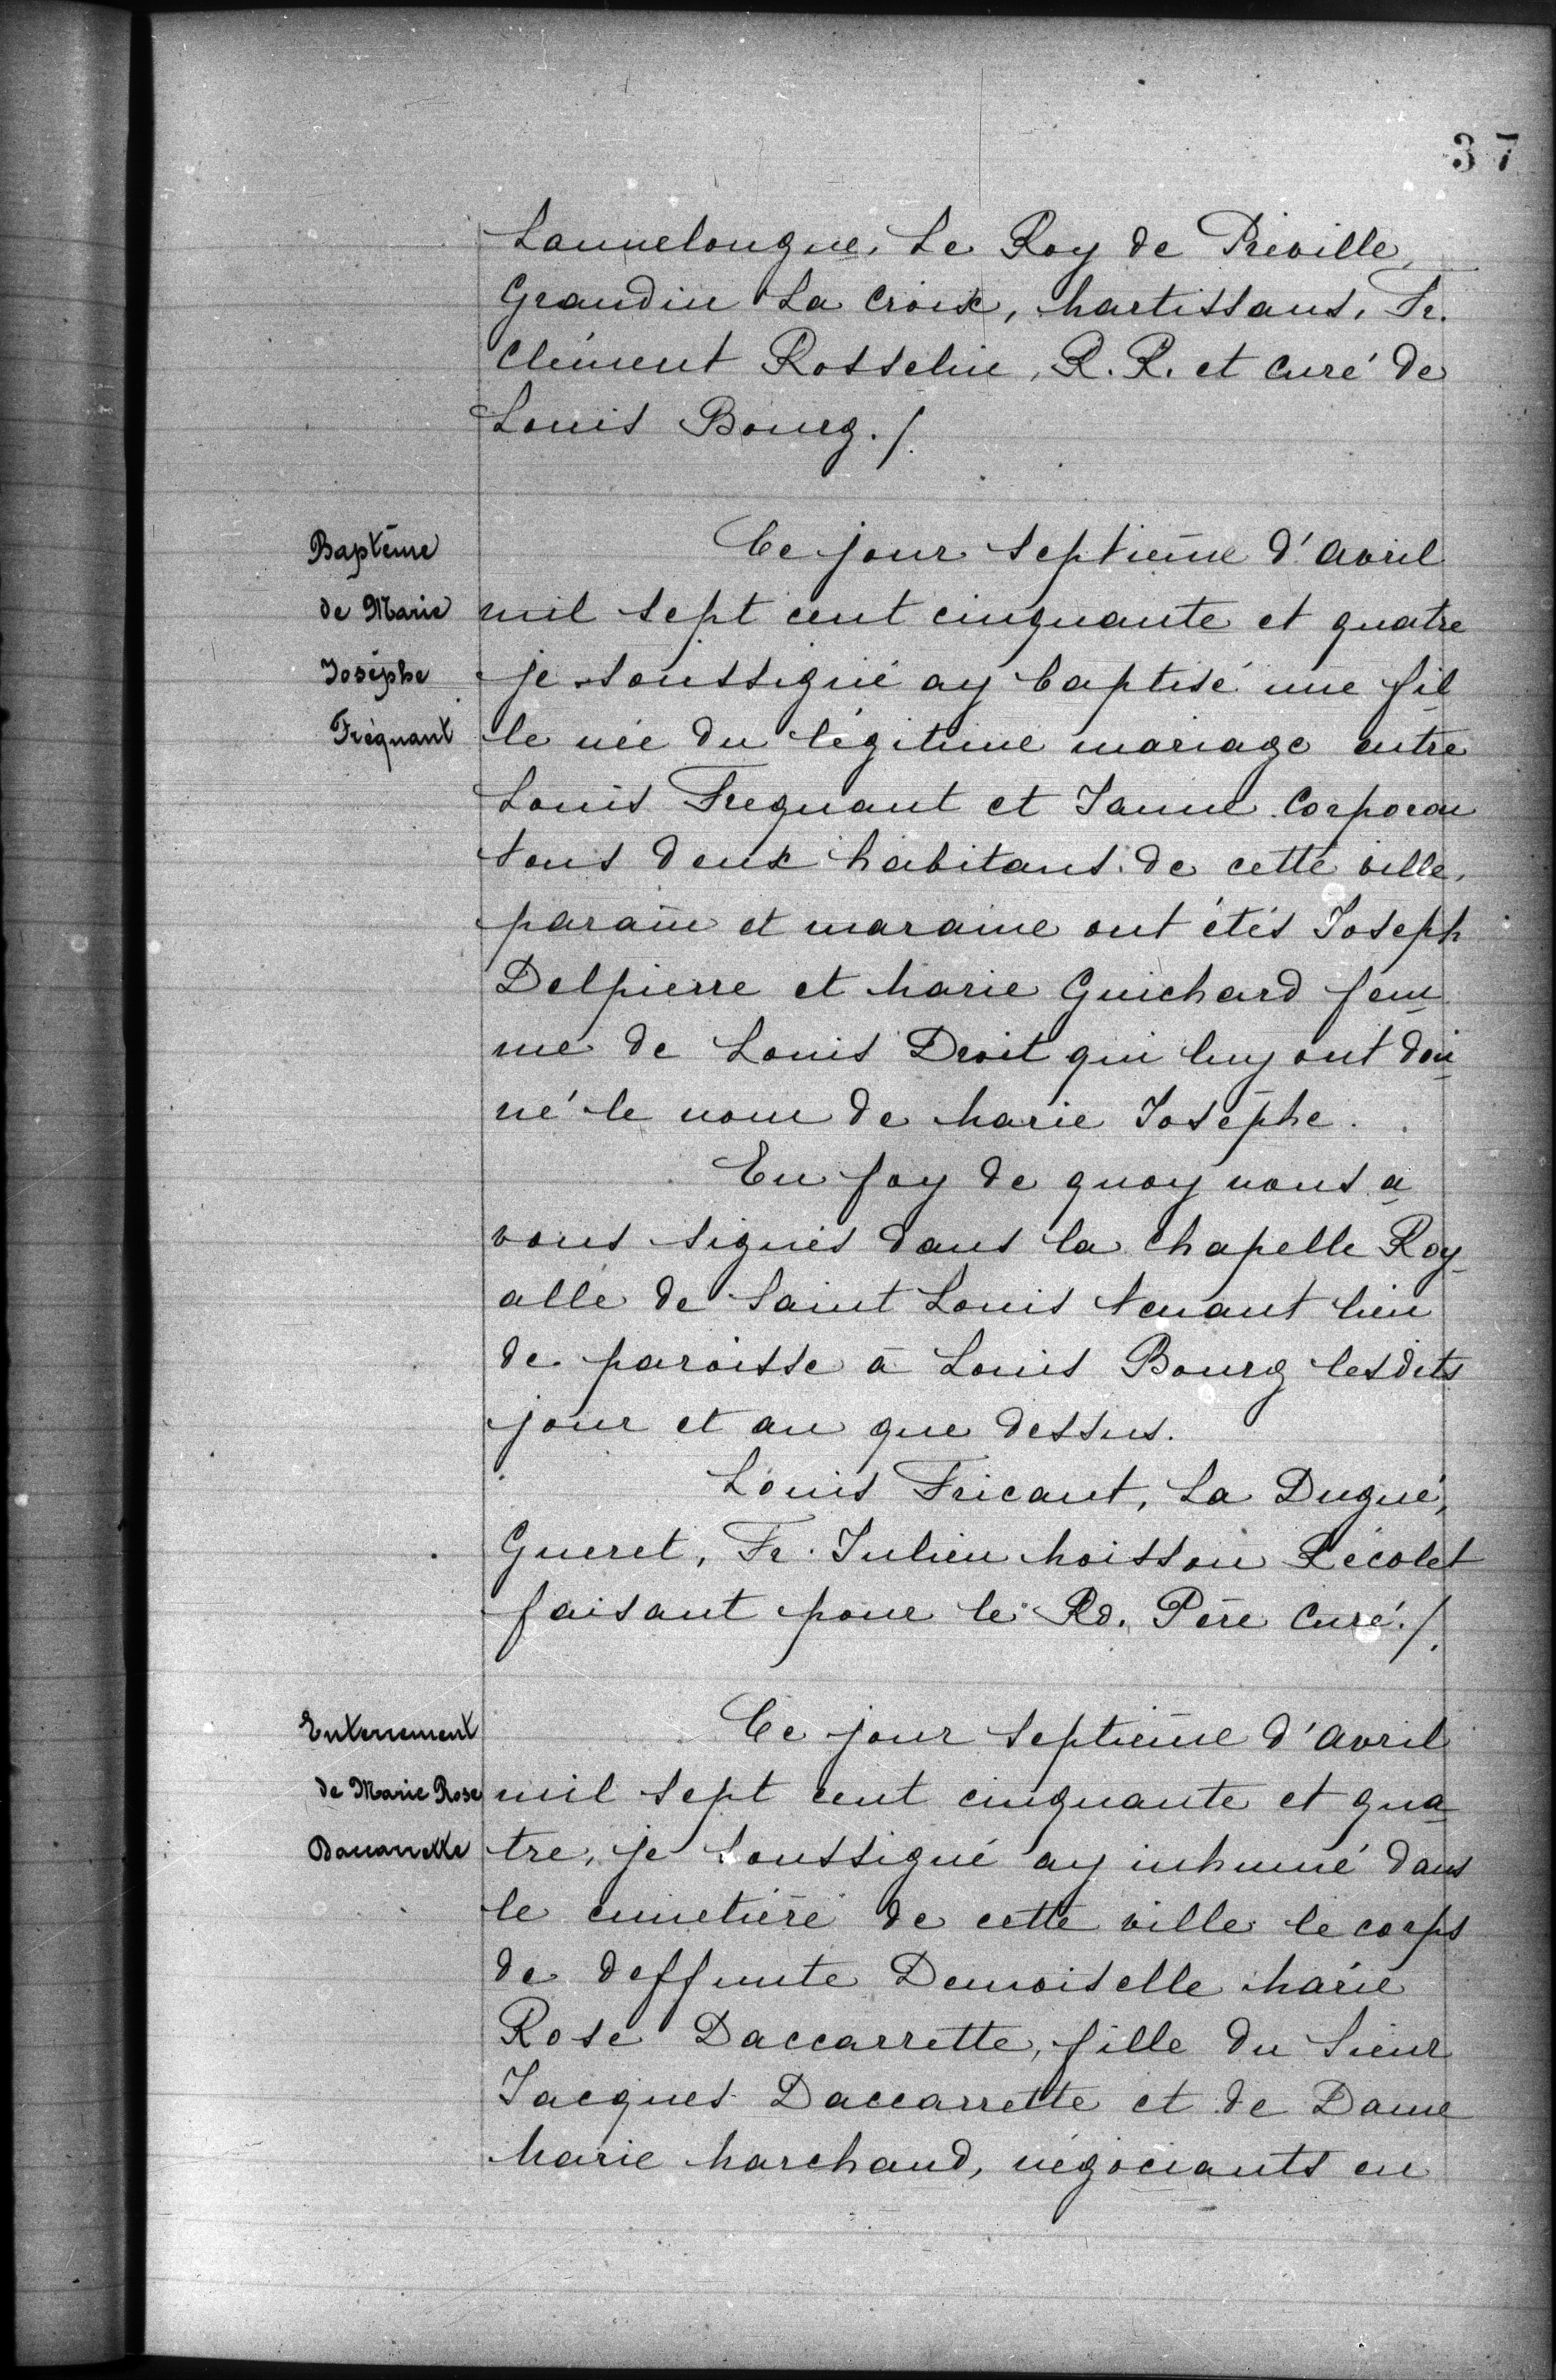 37
Lannelongue, Le Roy de Préville,
Grandin La Croix, Martissans, Fr.
Clément Rosselin, R. R. et Curé de
Louis Bourg./.
Baptême
de Marie
Josèphe
Fréquant
Ce jour septième d'avril
mil sept cent cinquante et quatre
je soussigné ay baptisé une fil
le née du légitime mariage entre
Louis Frequant et Janne Corporon
tous deux habitans de cette ville,
parain et maraine ont étés Joseph
Delpierre et Marie Guichard fem
me de Louis Droit qui luy ont don
né le nom de Marie Josèphe.
En foy de quoy nous a
vons signés dans la chapelle Roy
alle de Saint Louis tenant lieu
de paroisse à Louis Bourg lesdits
jour et an que dessus.
Louis Fricant, La Dugué,
Gueret, Fr. Julien Moisson Récolet
faisant pour le Rd. Père Curé./.
Enterrement
de Marie Rose
Daccarrette
Ce jour septième d'avril
mil sept cent cinquante et qua
tre, je soussigné ay inhumé dans
le cimetière de cette ville le corps
de deffunte Demoiselle Marie
Rose Daccarrette, fille du Sieur
Jacques Daccarrette et de Dame
Marie Marchand, négociants en